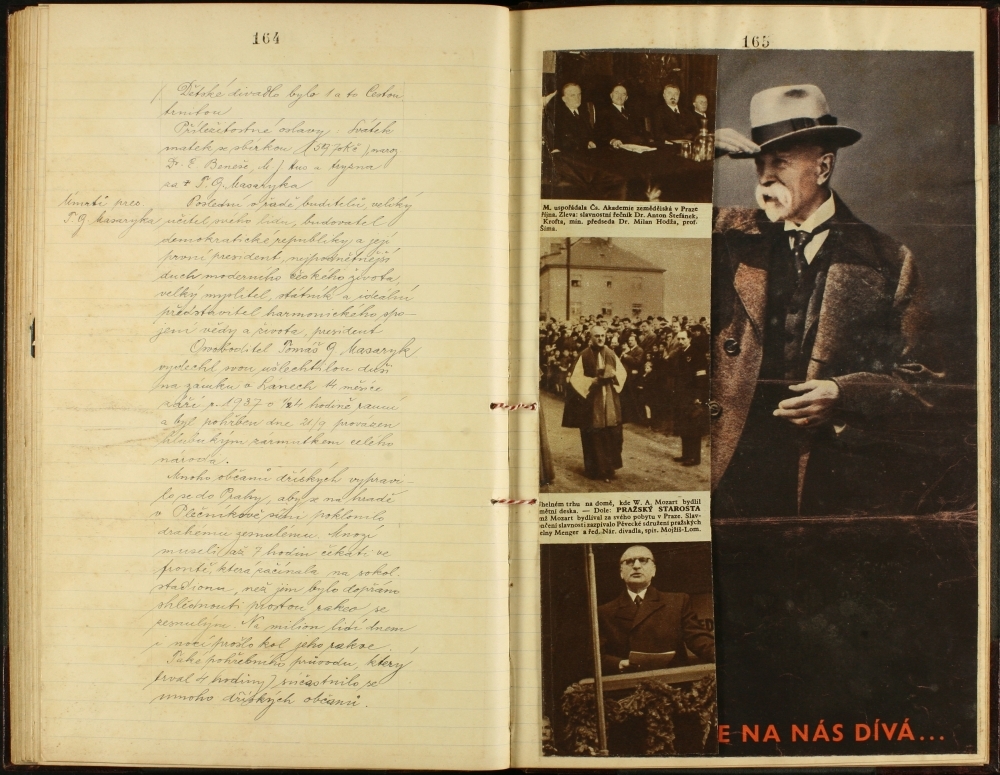 164
Dětské divadlo bylo 1 a to Cestou
trnitou
Příležitostné oslavy Svátek
matek se sbírkou
Dr. E. Beneše, a tryzna
za † T. G. Masaryka
Úmrtí pres.
T. G. Masaryka
Poslední v řadě buditelů, veliký
učitel svého lidu, budovatel
demokratické republiky a její
první president, nejpodnětnější
duch moderního českého života
velký myslitel, státník a ideální
představitel harmonického spo-
jení vědy a života, president
Osvoboditel Tomáš G. Masaryk
vydechl svou ušlechtilou duši
na zámku v Lánech 14 měsíce
září r. 1937 o hodině ranní
a byl pohřben dne 21/9 provázen
hlubokým zármutkem celého
národa.
Mnoho občanů dříských vypravi-
lo se do Prahy, aby se na hradě
v Plečnikově síni poklonilo
drahému zesnulému. Mnozí
museli až 7 hodin čekati ve
frontě, která začínala na sokol.
stadionu, než jim bylo dopřáno
shlédnouti prostou rakev se
zesnulým. Na milion lidí dnem
i nocí prošlo kol jeho rakve.
Také pohřebního průvodu, který
trval 4 hodiny, súčastnilo se
mnoho dříských občanů.
165
M. uspořádala Čs. Akademie zemědělská v Praze
října. Zleva: slavnostní řečník Dr. Anton Štefánek,
Krofta, min. předseda Dr. Milan Hodža, prof.
Šima.
helném trhu na domě, kde W. A. Mozart bydlil
mětní deska. — Dole: PRAŽSKÝ STAROSTA
mž Mozart bydlíval za svého pobytu v Praze. Slav-
ončení slavnosti zazpívalo Pěvecké sdružení pražských
elny Menger a řed. Nár. divadla, spis. Mojžíš-Lom.
E NA NÁS DÍVÁ...